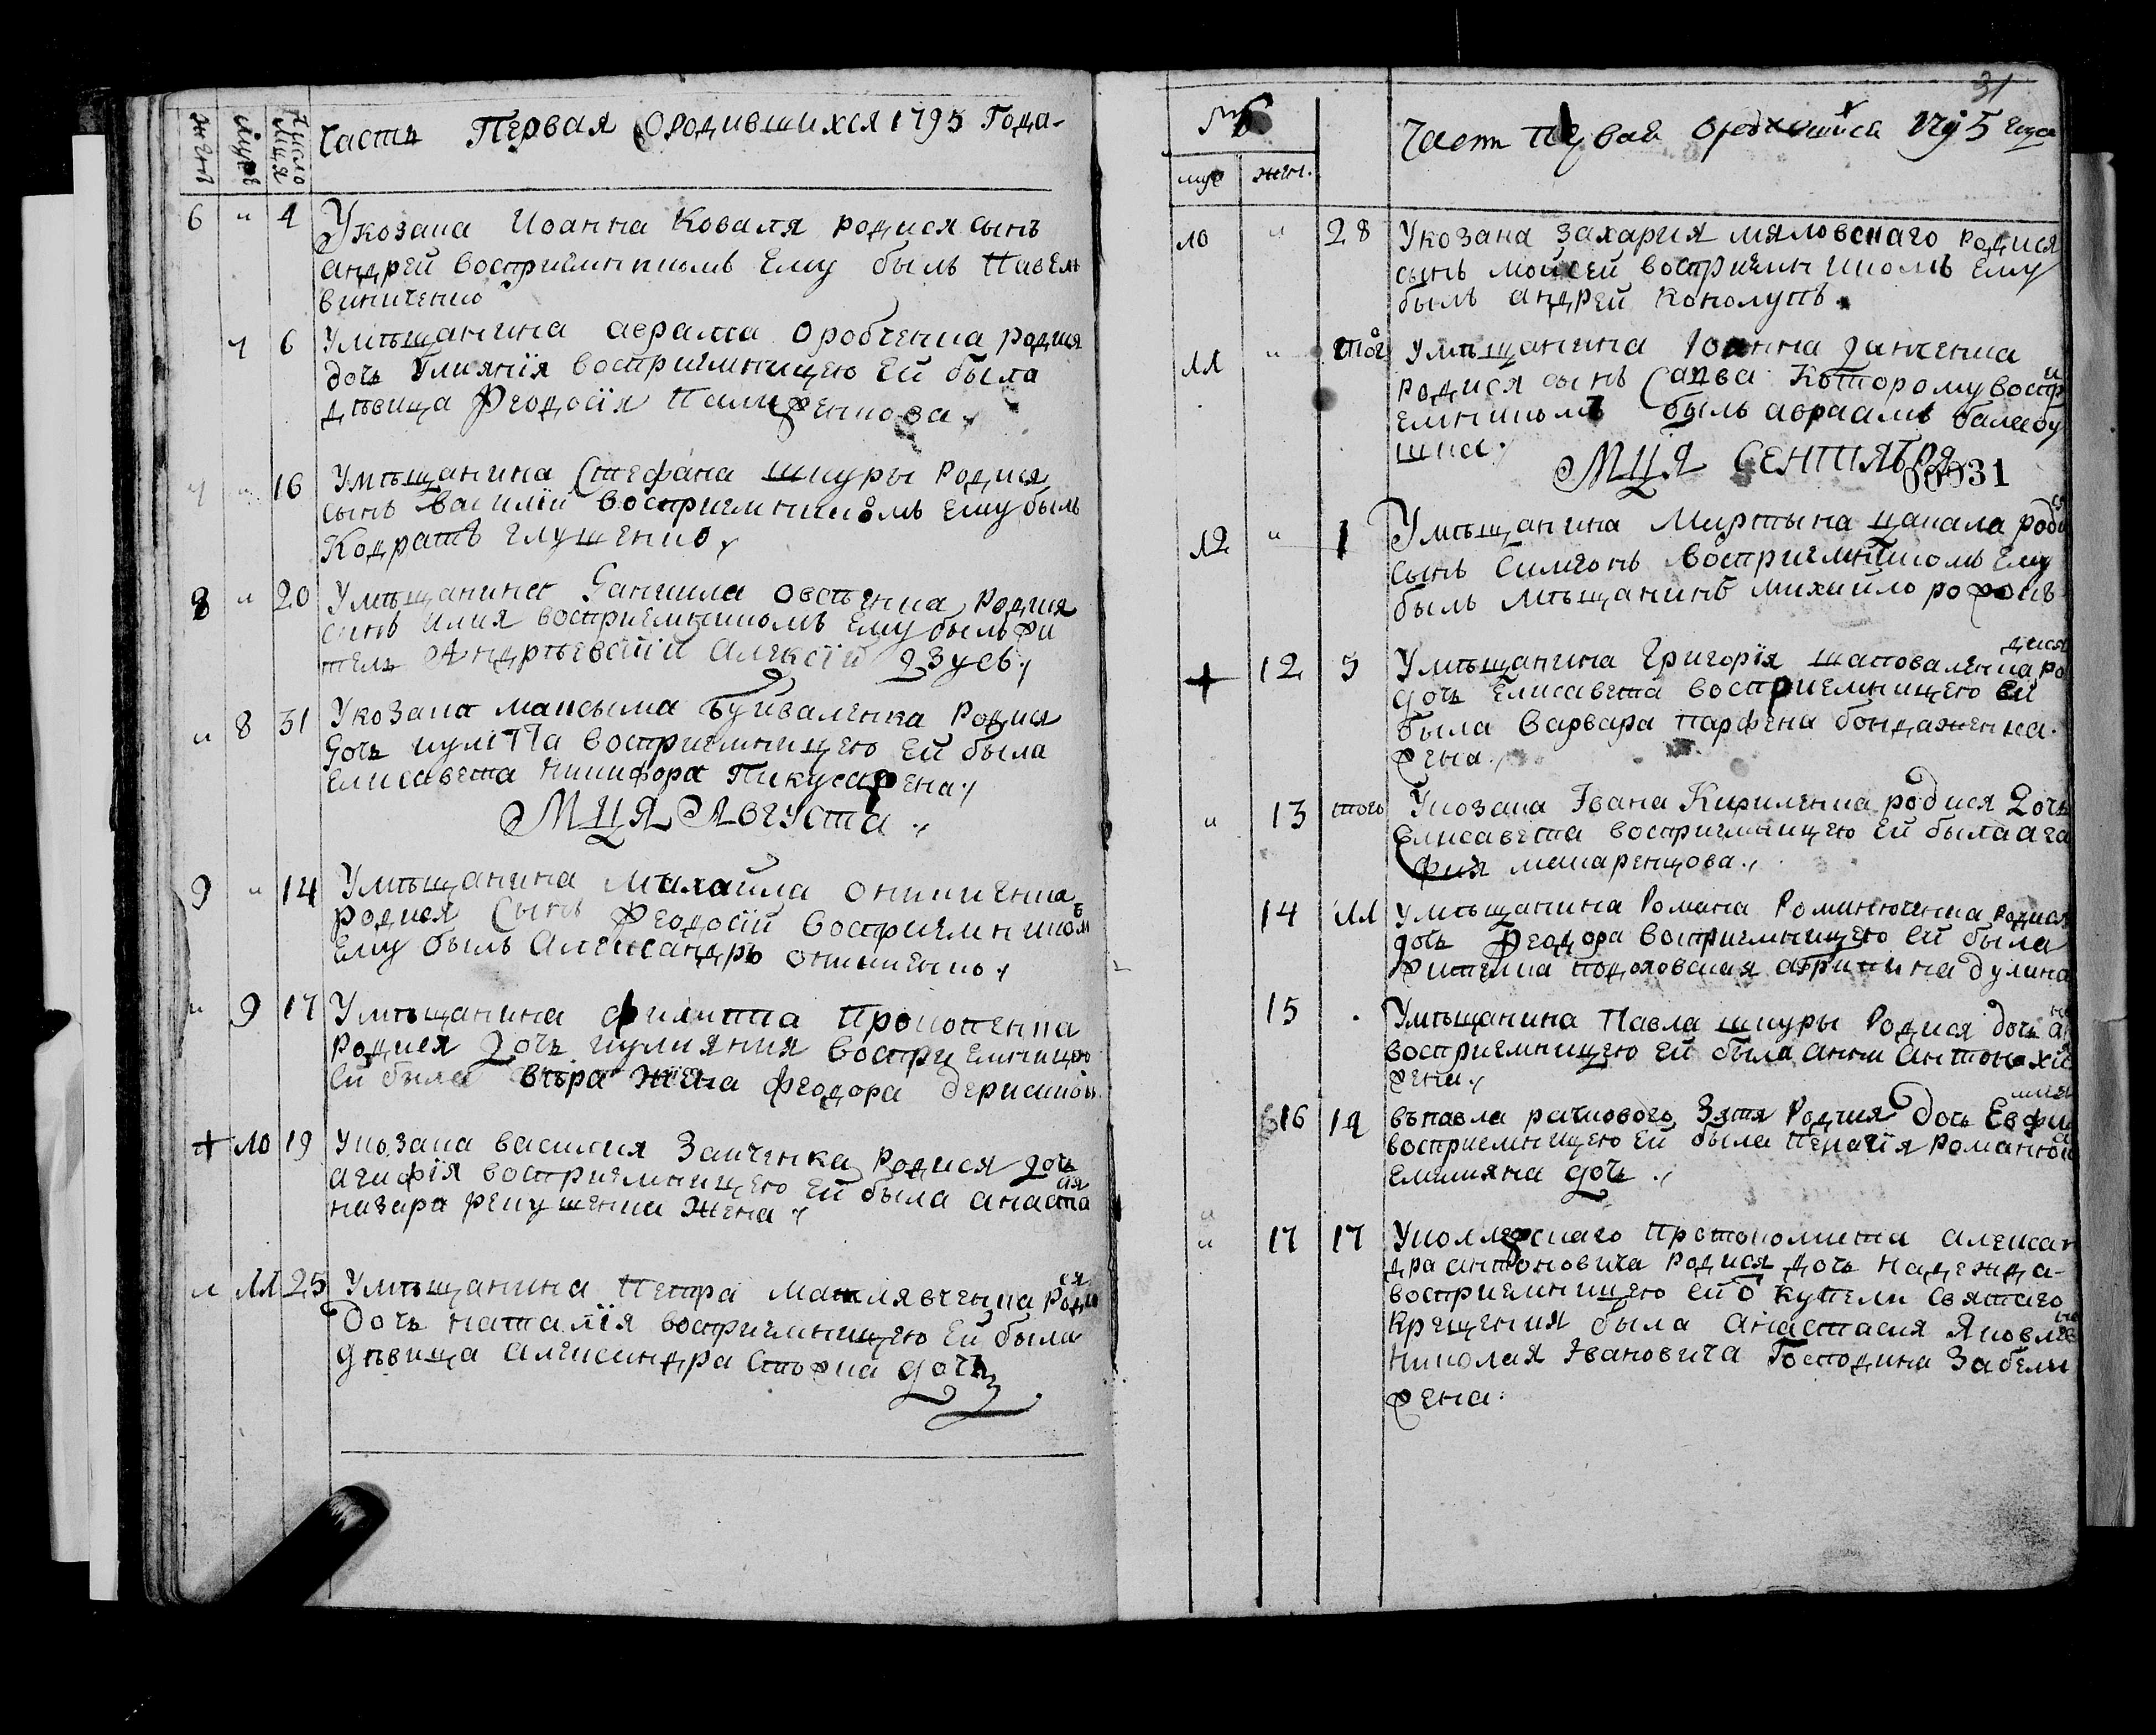 Часть Первая ородившихся 1795 Года
женъ мужъ число мца
6 " 4 Укозака Иоанна Коваля родися сынъ
андрей восприемникомъ Ему былъ Павелъ
виниченко
7 6 Умѣщанина аврама Оробченка родися
дочь Улиянія восприемницею Ей была
дѣвица Феодосія
7 " 16 Умѣщанина Стефана шкуры родися
сынъ Василій восприемникомъ Ему былъ
Кодратъ глущенко
8 " 20 Умѣщанина Данила овсѣенка родися
синъ илия восприемникомъ Ему былъ жи
тель Андрѣевскій Алексій Зуевъ
" 8 31 Укозака максыма Буйваленка Родися
дочь иулітта восприемницею Ей была
Елисавета никифора Пикуса жена
Мця Августа
9 " 14 Умѣщанина михайла оникиенка
родися Сынъ Феодосій восприемникомъ
Ему былъ Александръ оникиенко
" 9 17 Умѣщанина филиппа Прокопенка
родися Дочь иулияния восприемницею
Ей была вѣра жена феодора
+ 10 19 Укозака василия Заиченка Родися дочь
агафія восприемницею Ей была анаста
сія
назара жена
" 11 25 Умѣщанина Петра Роди
ся
Дочь наталія восприемницею Ей была
дѣвица александра дочь
31
№ 6
муж жен.
Част первая ородившихся 1795 года
10 " 28 Укозака захария мяловскаго родися
сынъ моисей восприемникомъ Ему
былъ андрей Кополупъ
11 " тог Умѣщанина Іоанна
родися сынъ Савва Которому воспри
емникомъ былъ авраамъ балабу
шка
Мця Сентиября
00031
12 " 1 Умѣщанина Мартына цапала роди
ся
сынъ Симеонъ восприемникомъ Ему
былъ мѣщанинъ михайло
+ 12 5 Умѣщанина григорія шаповаленка ро
дися
дочь Елисавета восприемницею ей
была варвара парфена
жена
" 13 того Укозака Івана Кириленка родися Дочь
Елисавета восприемницею Ей была ага
фия
14 11 Умѣщанина Романа Романюченка родися
дочь Феодора восприемницею Ей была
жителка агрипина дулина
15 . Умѣщанина Павла шкуры Родися дочь
восприемницею Ей была анна
жена
16 14 Зятя Родися Дочь Евфи
мия
восприемницею Ей была Пелагія
Емилияна дочь
" 17 17 Уколлежскаго Протоколиста алексан
дра антоновича родися дочь надежда
восприемницею ей о купели святаго
крещения была анастасия Яковлевна
николая Івановича Господина Забелы
жена